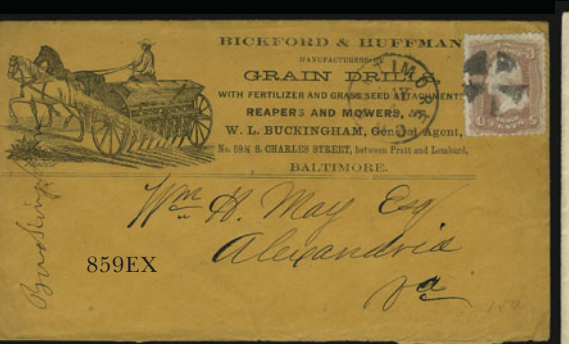 BICKFORD & HUFFMAN
MANUFACTURERS OF
GRAIN DRILL
WITH FERTILIZER AND GRASS SEED ATTACHMENT
REAPERS AND MOWERS, &
W. L. BUCKINGHAM, General Agent,
No. 59½ S. CHARLES STREET, between Pratt and Lombard,
BALTIMORE.
TIMORE
3
U S
CENTS
Wm H. May Esq
Alexandria
Va
859EX